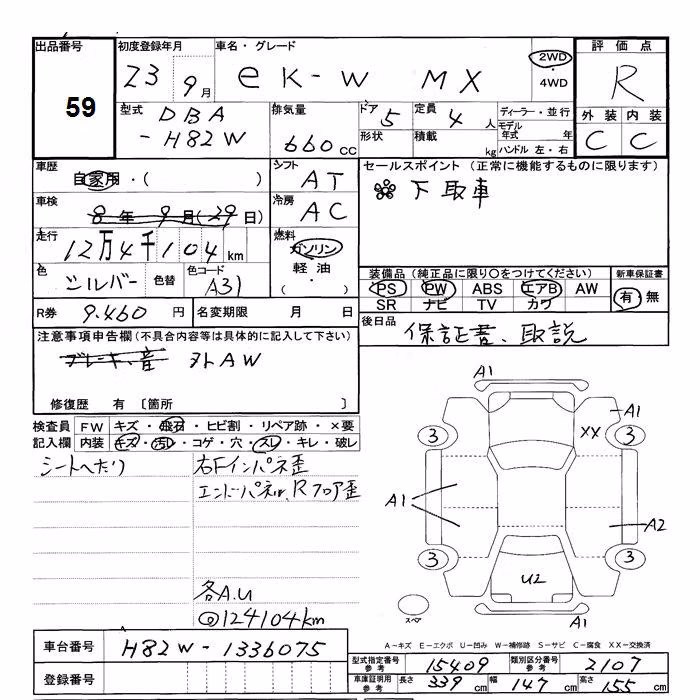 出品番号 初度登録年月 車名・グレード 評価点
59 23 9月 eK-W MX 2WD・4WD R
型式 DBA-H82W 排気量 660cc ドア 5 定員 4人 ディーラー・並行 外装 内装
形状 積載 kg モデル年式 年 C C
ハンドル 左・右
車歴 自家用・( ) シフト AT セールスポイント (正常に機能するものに限ります)
車検 8年9月(29日) 冷房 AC 下取車
走行 12万4千104km 燃料 ガソリン
色 シルバー 色替 色コード A31 軽油・( )
装備品(純正品に限り○をつけてください) 新車保証書
PS PW ABS エアB AW 有・無
SR ナビ TV カワ
R券 9.460円 名変期限 月 日
後日品 保証書、取説
注意事項申告欄(不具合内容等は具体的に記入して下さい)
ブレーキ、音 外AW
修復歴 有 〔箇所 〕
検査員記入欄 FW キズ・飛石・ヒビ割・リペア跡・×要
内装 キズ・汚レ・コゲ・穴・スレ・キレ・破レ
シートへたり 右Fインパネ歪
エンドーパネル、Rフロア歪
各A.U
◎124104km
A1
A1
3 XX 3
A1 A2
3 3
U2
スペア A1
A−キズ E−エクボ U−凹み W−補修跡 S−サビ C−腐食 XX−交換済
車台番号 H82W-1336075
登録番号
型式指定番号参考 15409 類別区分番号参考 2107
車庫証明用参考 長さ 339cm 幅 147cm 高さ 155cm